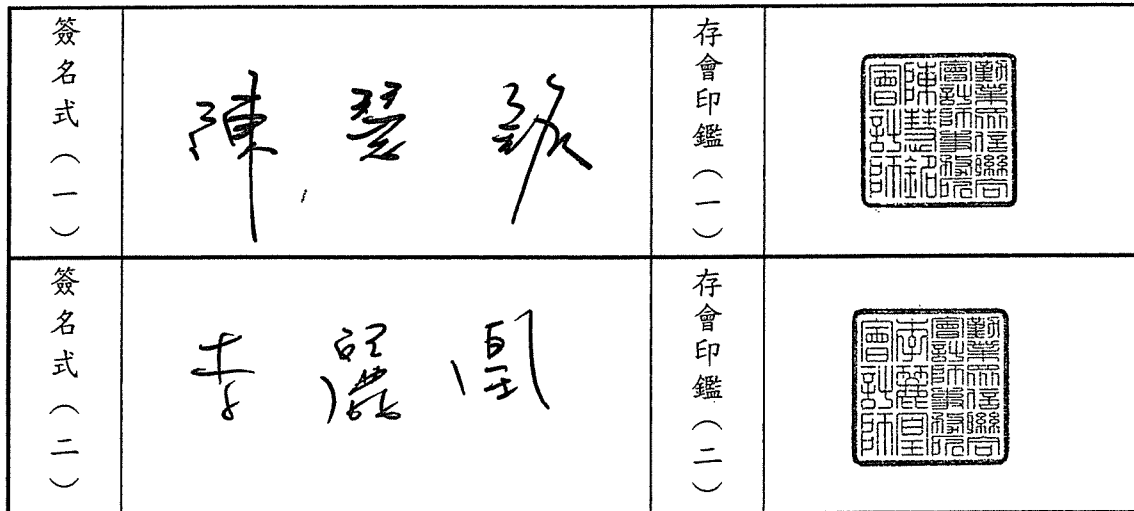 簽名式（一）
陳慧銘
存會印鑑（一）
勤業眾信聯合
會計師事務所
陳慧銘
會計師
簽名式（二）
李麗凰
存會印鑑（二）
勤業眾信聯合
會計師事務所
李麗凰
會計師